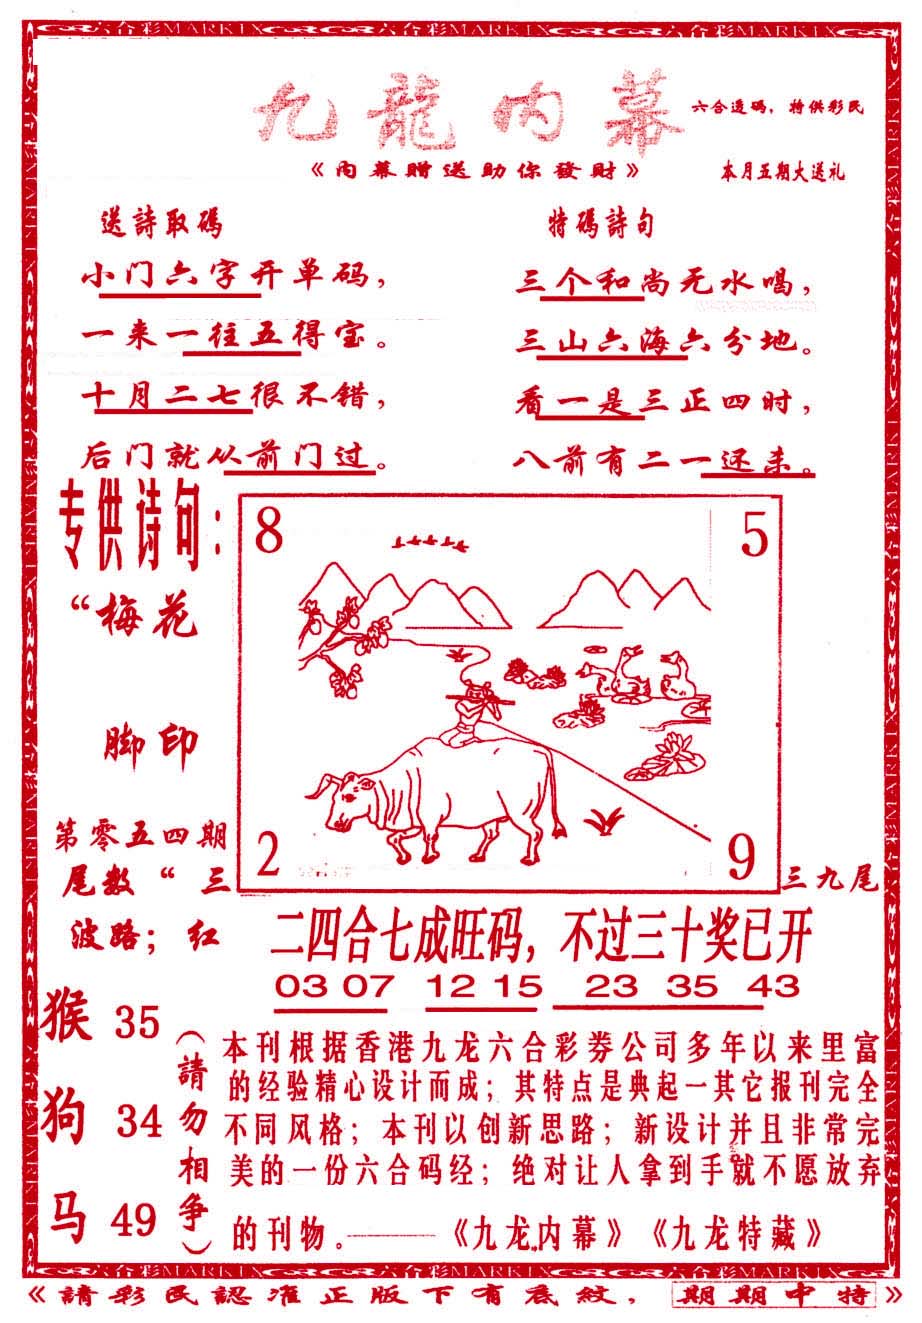 六合彩MARKIX 六合彩MARKIX 六合彩MARKIX
九龍内幕
六合透碼，特供彩民
《内幕贈送助你發財》
本月五期大送礼
送詩取碼
小门六字开单码，
一来一往五得宝。
十月二七很不错，
后门就从前门过。
特碼詩句
三个和尚无水喝，
三山六海六分地。
看一是三正四时，
八前有二一还来。
专供诗句：
“梅花
脚印
第零五四期
尾数“三
波路；红
8
5
2
9
三九尾
二四合七成旺码，不过三十奖已开
03 07 12 15 23 35 43
猴 35
狗 34
马 49
（請勿相争）
本刊根据香港九龙六合彩券公司多年以来里富
的经验精心设计而成；其特点是典起一其它报刊完全
不同风格；本刊以创新思路；新设计并且非常完
美的一份六合码经；绝对让人拿到手就不愿放弃
的刊物。——《九龙内幕》《九龙特藏》
六合彩MARKIX 六合彩MARKIX 六合彩MARKIX
《請彩民認准正版下有底紋，期期中特》